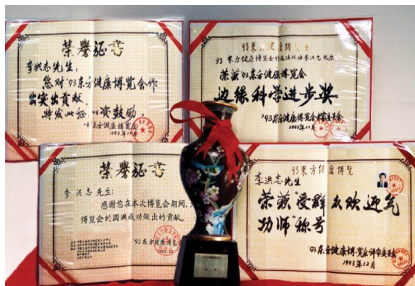 荣誉证书
李洪志先生:
您对'93东方健康博览会作
出突出贡献,
特发此证 以资鼓励
'93东方健康博览会
1993年12月
'93东方健康博览会
荣获'93东方健康博览会
边缘科学进步奖
'93东方健康博览会
1993年12月
荣誉证书
李洪志先生:
感谢您在本次博览会期间,
博览会的圆满成功做出的贡献。
'93东方健康博览会
'93东方健康博览
李洪志先生
荣获受群众欢迎气
功师称号
'93东方健康博览会评审委员会
1993年12月